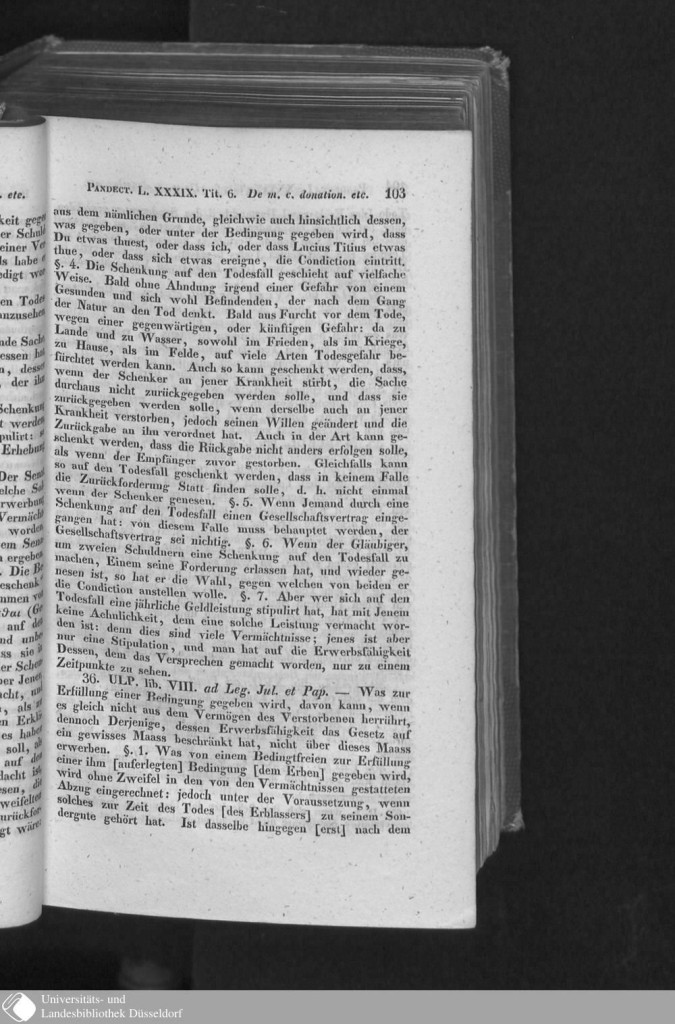 . etc.
keit gegen
er Schuld
einer Ver
ls habe
edigt wor
en Todes
anzusehen
nde Sach
essen
n, dessen
, der ihn
Schenkung
t werden
pulirt:
Erhebung
Der Senat
elche
rwerbung
Vermächt
worden
em Sena
n ergeben
. Die Be
eschenk
mmen von
θαι (Ge
auf den
nd unbe
ss sie
er Schen
ber Jener
acht, und
, als
en Erkl
es habe
soll,
auf den
dacht ist
esen, die
weifelte
urückfor
gt wäre
PANDECT. L. XXXIX. Tit. 6. De m. c. donation. etc. 103
aus dem nämlichen Grunde, gleichwie auch hinsichtlich dessen,
was gegeben, oder unter der Bedingung gegeben wird, dass
Du etwas thuest, oder dass ich, oder dass Lucius Titius etwas
thue, oder dass sich etwas ereigne, die Condition eintritt.
§. 4. Die Schenkung auf den Todesfall geschieht auf vielfache
Weise. Bald ohne Ahndung irgend einer Gefahr von einem
Gesunden und sich wohl Befindenden, der nach dem Gang
der Natur an den Tod denkt. Bald aus Furcht vor dem Tode,
wegen einer gegenwärtigen, oder künftigen Gefahr: da zu
Lande und zu Wasser, sowohl im Frieden, als im Kriege,
zu Hause, als im Felde, auf viele Arten Todesgefahr be-
fürchtet werden kann. Auch so kann geschenkt werden, dass,
wenn der Schenker an jener Krankheit stirbt, die Sache
durchaus nicht zurückgegeben werden solle, und dass sie
zurückgegeben werden solle, wenn derselbe auch an jener
Krankheit verstorben, jedoch seinen Willen geändert und die
Zurückgabe an ihn verordnet hat. Auch in der Art kann ge-
schenkt werden, dass die Rückgabe nicht anders erfolgen solle,
als wenn der Empfänger zuvor gestorben. Gleichfalls kann
so auf den Todesfall geschenkt werden, dass in keinem Falle
die Zurückforderung Statt finden solle, d. h. nicht einmal
wenn der Schenker genesen. §. 5. Wenn Jemand durch eine
Schenkung auf den Todesfall einen Gesellschaftsvertrag einge-
gangen hat: von diesem Falle muss behauptet werden, der
Gesellschaftsvertrag sei nichtig. §. 6. Wenn der Gläubiger,
um zweien Schuldnern eine Schenkung auf den Todesfall zu
machen, Einem seine Forderung erlassen hat, und wieder ge-
nesen ist, so hat er die Wahl, gegen welchen von beiden er
die Condition anstellen wolle. §. 7. Aber wer sich auf den
Todesfall eine jährliche Geldleistung stipulirt hat, hat mit Jenem
keine Aehnlichkeit, dem eine solche Leistung vermacht wor-
den ist: denn dies sind viele Vermächtnisse; jenes ist aber
nur eine Stipulation, und man hat auf die Erwerbsfähigkeit
Dessen, dem das Versprechen gemacht worden, nur zu einem
Zeitpunkte zu sehen.
36. ULP. lib. VIII. ad Leg. Jul. et Pap. — Was zur
Erfüllung einer Bedingung gegeben wird, davon kann, wenn
es gleich nicht aus dem Vermögen des Verstorbenen herrührt,
dennoch Derjenige, dessen Erwerbsfähigkeit das Gesetz auf
ein gewisses Maass beschränkt hat, nicht über dieses Maass
erwerben. §. 1. Was von einem Bedingtfreien zur Erfüllung
einer ihm [auferlegten] Bedingung [dem Erben] gegeben wird,
wird ohne Zweifel in den von den Vermächtnissen gestatteten
Abzug eingerechnet: jedoch unter der Voraussetzung, wenn
solches zur Zeit des Todes [des Erblassers] zu seinem Son-
dergute gehört hat. Ist dasselbe hingegen [erst] nach dem
Universitäts- und
Landesbibliothek Düsseldorf